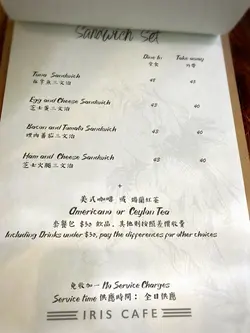 Sandwich Set
Dine In Take away
堂食 外帶
Tuna Sandwich 45 45
吞拿魚三文治
Egg and Cheese Sandwich 45 40
芝士蛋三文治
Bacon and Tomato Sandwich 45 40
煙肉蕃茄三文治
Ham and Cheese Sandwich 45 40
芝士火腿三文治
+
美式咖啡 或 錫蘭紅茶
Americano or Ceylon Tea
套餐包 $30 飲品，其他則按照差價收費
Including Drinks under $30, pay the differences for other choices
免收加一 No Service Charges
Service time 供應時間： 全日供應
IRIS CAFE